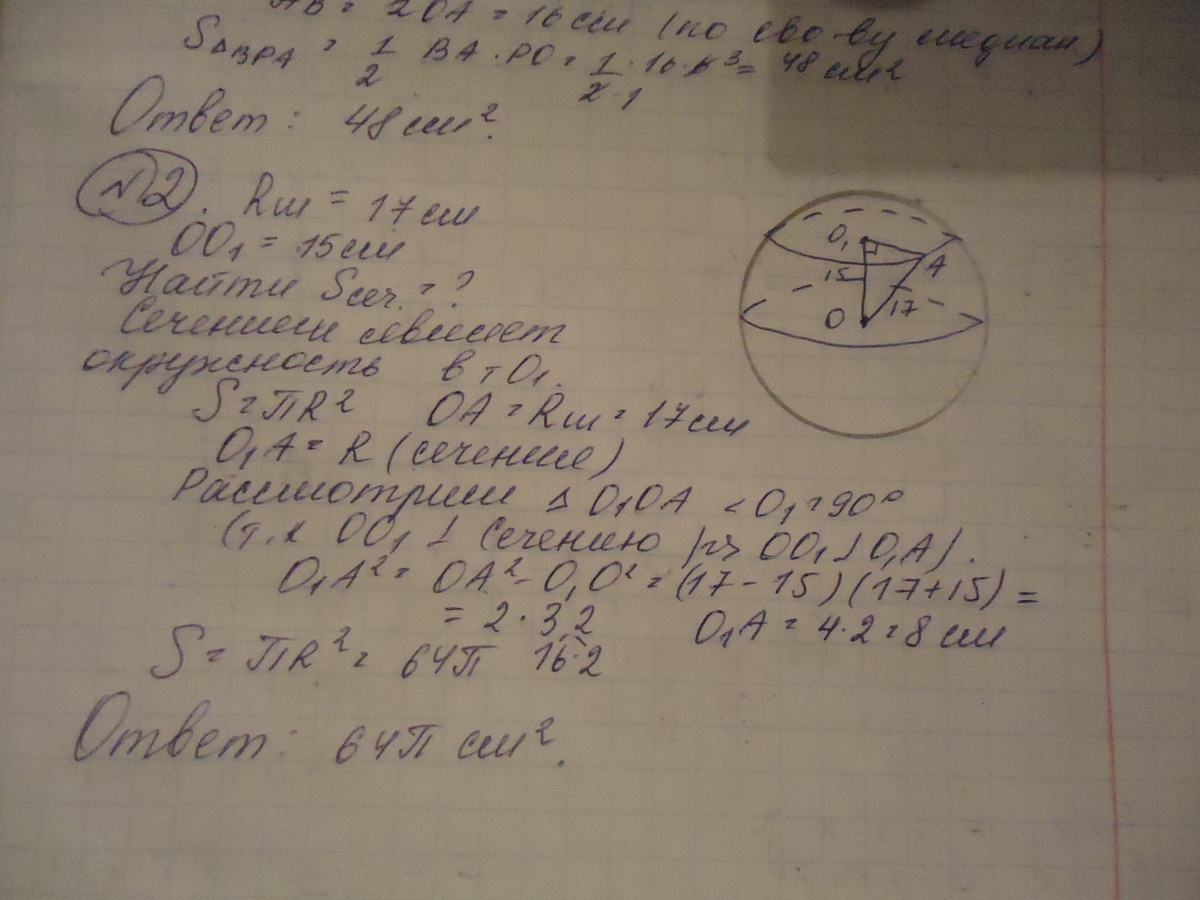 AB = 2OA = 16 см (по сво-ву медиан)
S△BPA = 1/2 BA · PO = 1/2·1 · 16 · 6 3 = 48 см²
Ответ: 48 см².
№2. Rш = 17 см
OO₁ = 15 см
Найти Sсеч. = ?
Сечением являет
окружность в т O₁.
S = πR² OA = Rш = 17 см
O₁A = R (сечение)
Рассмотрим △ O₁OA < O₁ = 90°
(т.к OO₁ ⊥ Сечению => OO₁ ⊥ O₁A).
O₁A² = OA² - O₁O² = (17 - 15) (17 + 15) =
= 2 · 32 O₁A = 4·2 = 8 см
16·2
S = πR² = 64π
Ответ: 64π см².
O₁
A
15
O
17